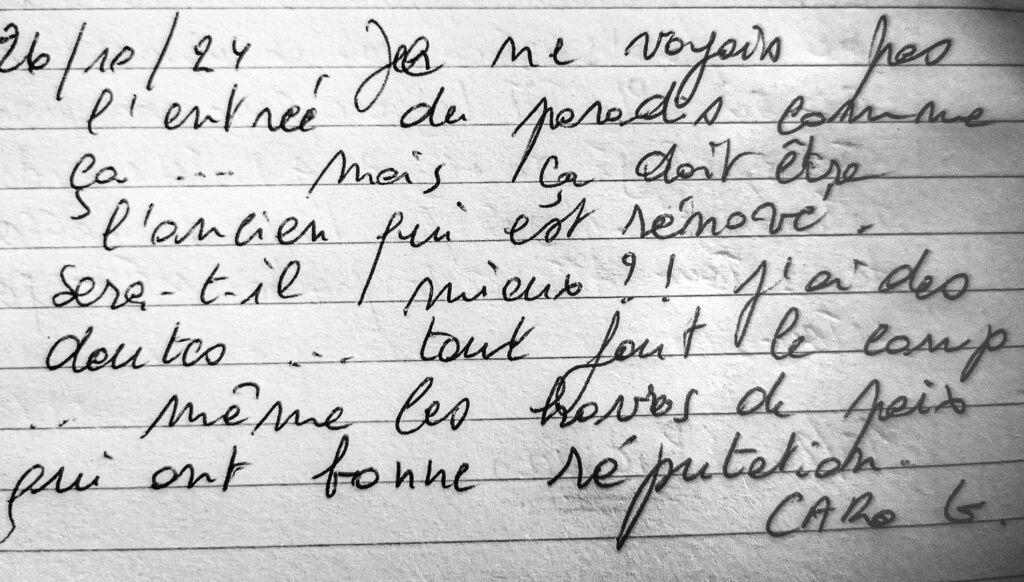 26/10/24. Je ne voyais pas
l'entrée du paradis comme
ça .... mais ça doit être
l'ancien qui est rénové.
Sera-t-il mieux ?! J'ai des
doutes ... tout fout le camp
... même les havres de paix
qui ont bonne réputation.
CARO G.